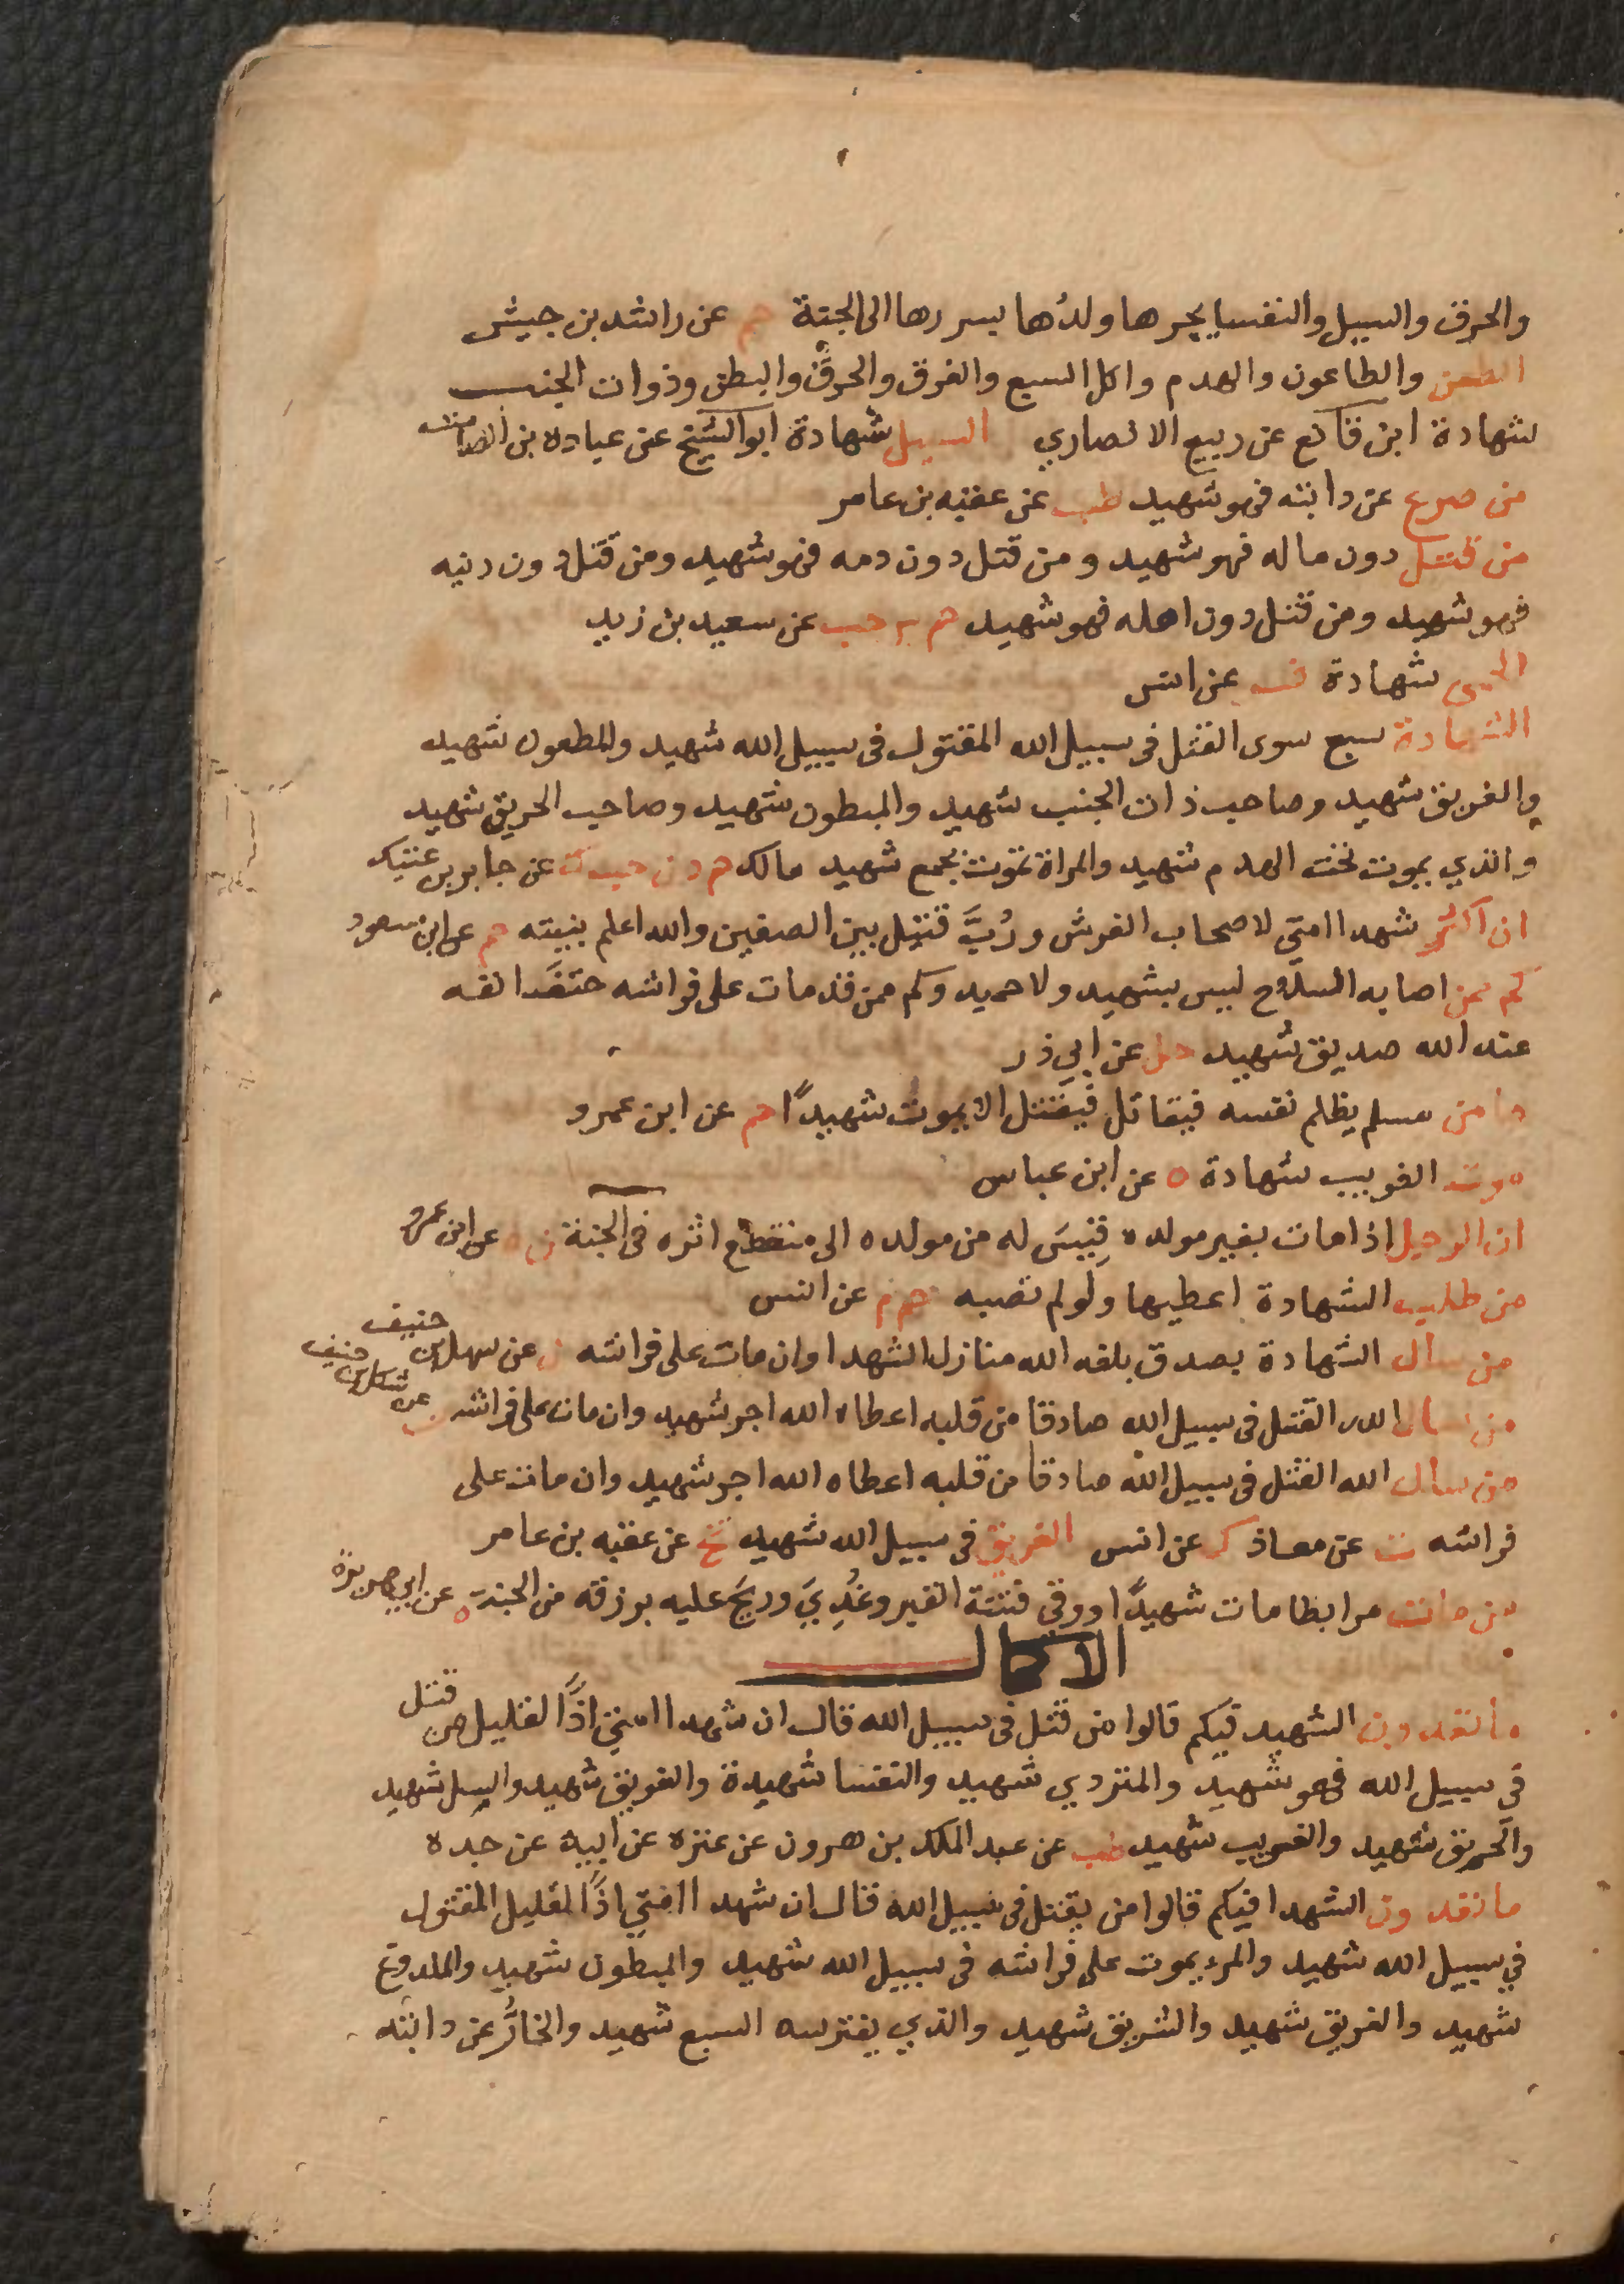 والحرق والسيل والنفسا يجرها ولدُها بسررها الى الجنة حم عن راشد بن حبيش
الطعن والطاعون والهدم واكل السبع والغرق والحرق والبطن وذوات الجنب
شهادة ابن قانع عن ربيع الانصاري السيل شهادة ابو الشيخ عن عبادة بن الصامت
من صرع عن دابته فهو شهيد طب عن عقبه بن عامر
من قتل دون ماله فهو شهيد ومن قتل دون دمه فهو شهيد ومن قتل دون دينه
فهو شهيد ومن قتل دون اهله فهو شهيد حم حب عن سعيد بن زيد
الحمى شهادة فر عن انس
الشهادة سبع سوى القتل فى سبيل الله المقتول فى سبيل الله شهيد والمطعون شهيد
والغريق شهيد وصاحب ذات الجنب شهيد والمبطون شهيد وصاحب الحريق شهيد
والذي يموت تحت الهدم شهيد والمراة تموت بجمع شهيد مالك حم د ن حب ك عن جابر بن عتيك
ان اكثر شهدا امتي لاصحاب الفرش ورُبَّ قتيل بين الصفين والله اعلم بنيته حم عن ابن مسعود
كم ممن اصابه السلاح ليس بشهيد ولا حميد وكم ممن قد مات على فراشه حتف انفه
عند الله صديق شهيد حل عن ابي ذر
ما من مسلم يظلم نفسه فيقاتل فيقتل الا يموت شهيدًا حم عن ابن عمرو
موت الغريب شهادة ه عن ابن عباس
ان الرجل اذا مات بغير مولده قِيسَ له من مولده الى منقطع اثره فى الجنة ن ه عن ابن عمرو
من طلب الشهادة اعطيها ولو لم تصبه حم م عن انس
من سال الشهادة بصدق بلغه الله منازل الشهدا وان مات على فراشه ن عن سهل بن حنيف
من سال الله القتل فى سبيل الله صادقا من قلبه اعطاه الله اجر شهيد وان مات على فراشه عن سهل بن حنيف
من سال الله القتل فى سبيل الله صادقا من قلبه اعطاه الله اجر شهيد وان مات على
فراشه ت عن معاذ ك عن انس الغريق فى سبيل الله شهيد تخ عن عقبه بن عامر
من مات مرابطا مات شهيدًا ووقى فتنة القبر وغُدِيَ وريحَ عليه برزقه من الجنة ه عن ابي هريرة
الاكمال
ما تعدون الشهيد فيكم قالوا من قتل فى سبيل الله قال ان شهدا امتي اذًا لقليل من قتل
فى سبيل الله فهو شهيد والمتردي شهيد والنفسا شهيدة والغريق شهيد والسل شهيد
والحريق شهيد والغريب شهيد طب عن عبد الملك بن هرون عن عنزه عن ابيه عن جده
ما تعدون الشهدا فيكم قالوا من يقتل فى سبيل الله قال ان شهدا امتي اذًا لقليل المقتول
في سبيل الله شهيد والمرء يموت على فراشه فى سبيل الله شهيد والمبطون شهيد والملدوغ
شهيد والغريق شهيد والشريق شهيد والذي يفترسه السبع شهيد والخارُّ عن دابته